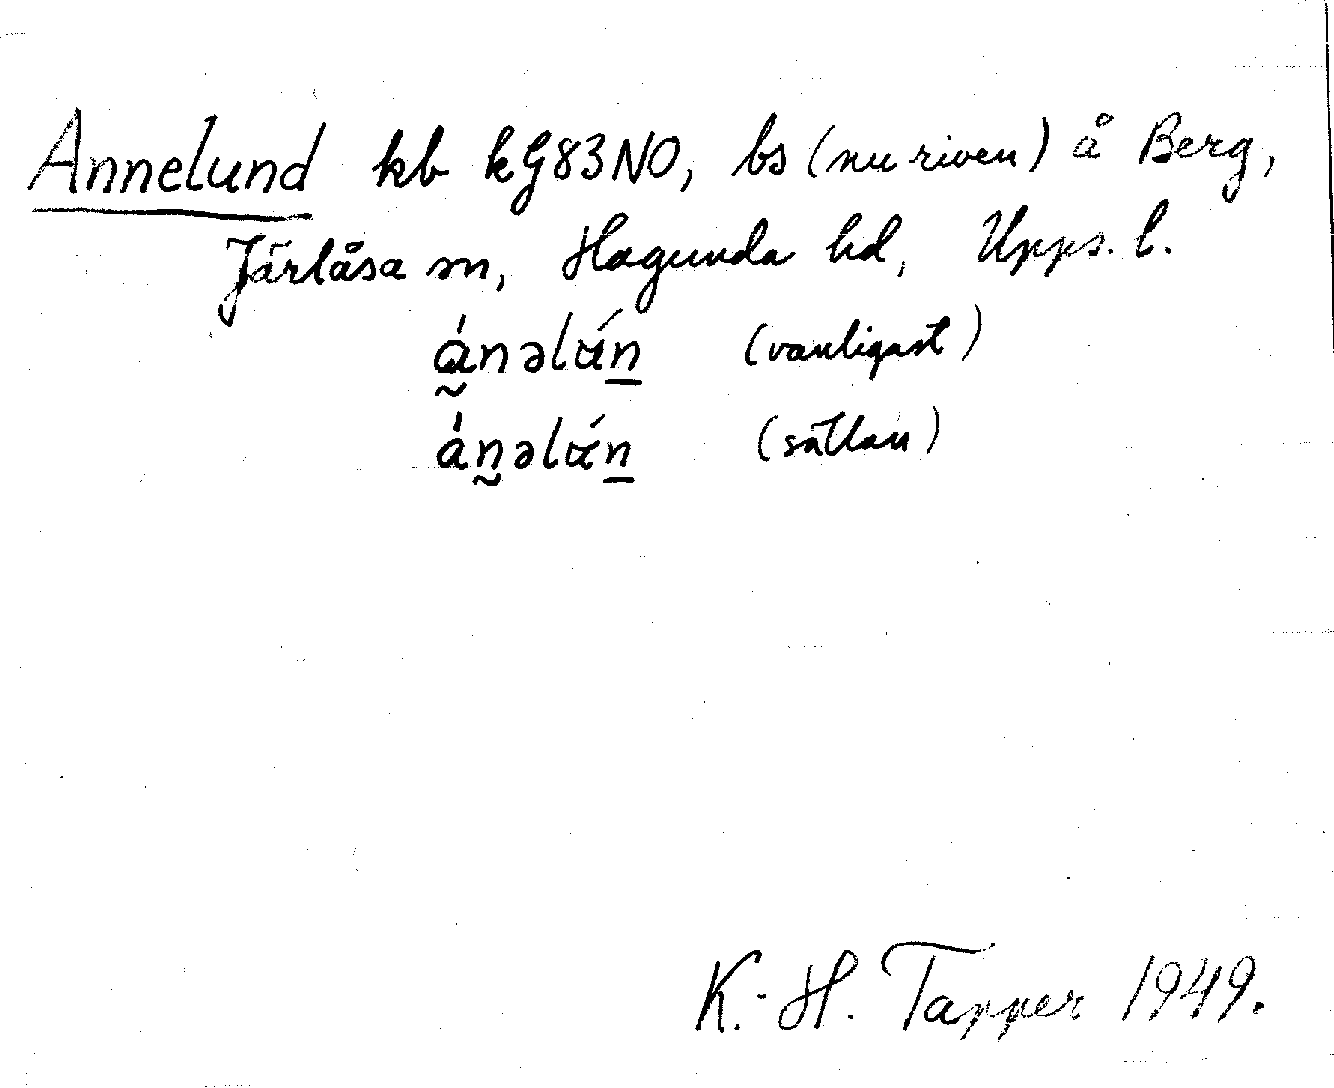 Annelund kb kG83NO, bs (nu riven) å Berg,
Järlåsa sn, Hagunda hd, Upps. l.
a̰̍nəlɑ́n̲ (vanligast)
a̍n̰əlɑ́n̲ (sällan)
K.-H. Tapper 1949.